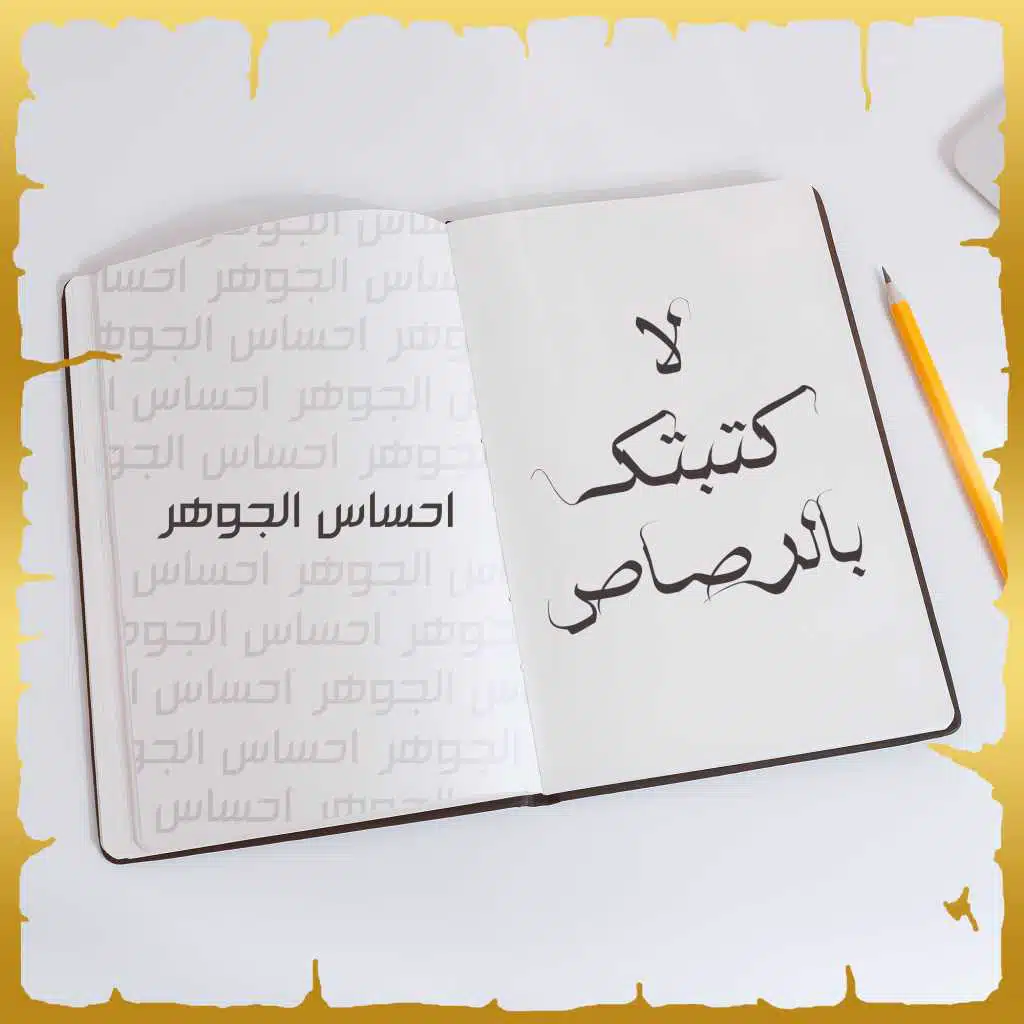 لا
كتبتك
بالرصاص
الجوهر احساس
احساس الجوهر احساس
الجوهر احساس الجوهر
احساس الجوهر ا
الجوهر احساس الجو
احساس الجوهر
احساس الجوهر احساس
الجوهر احساس الجوهر
احساس الجوهر احساس ا
الجوهر احساس الجو
الجوهر احساس